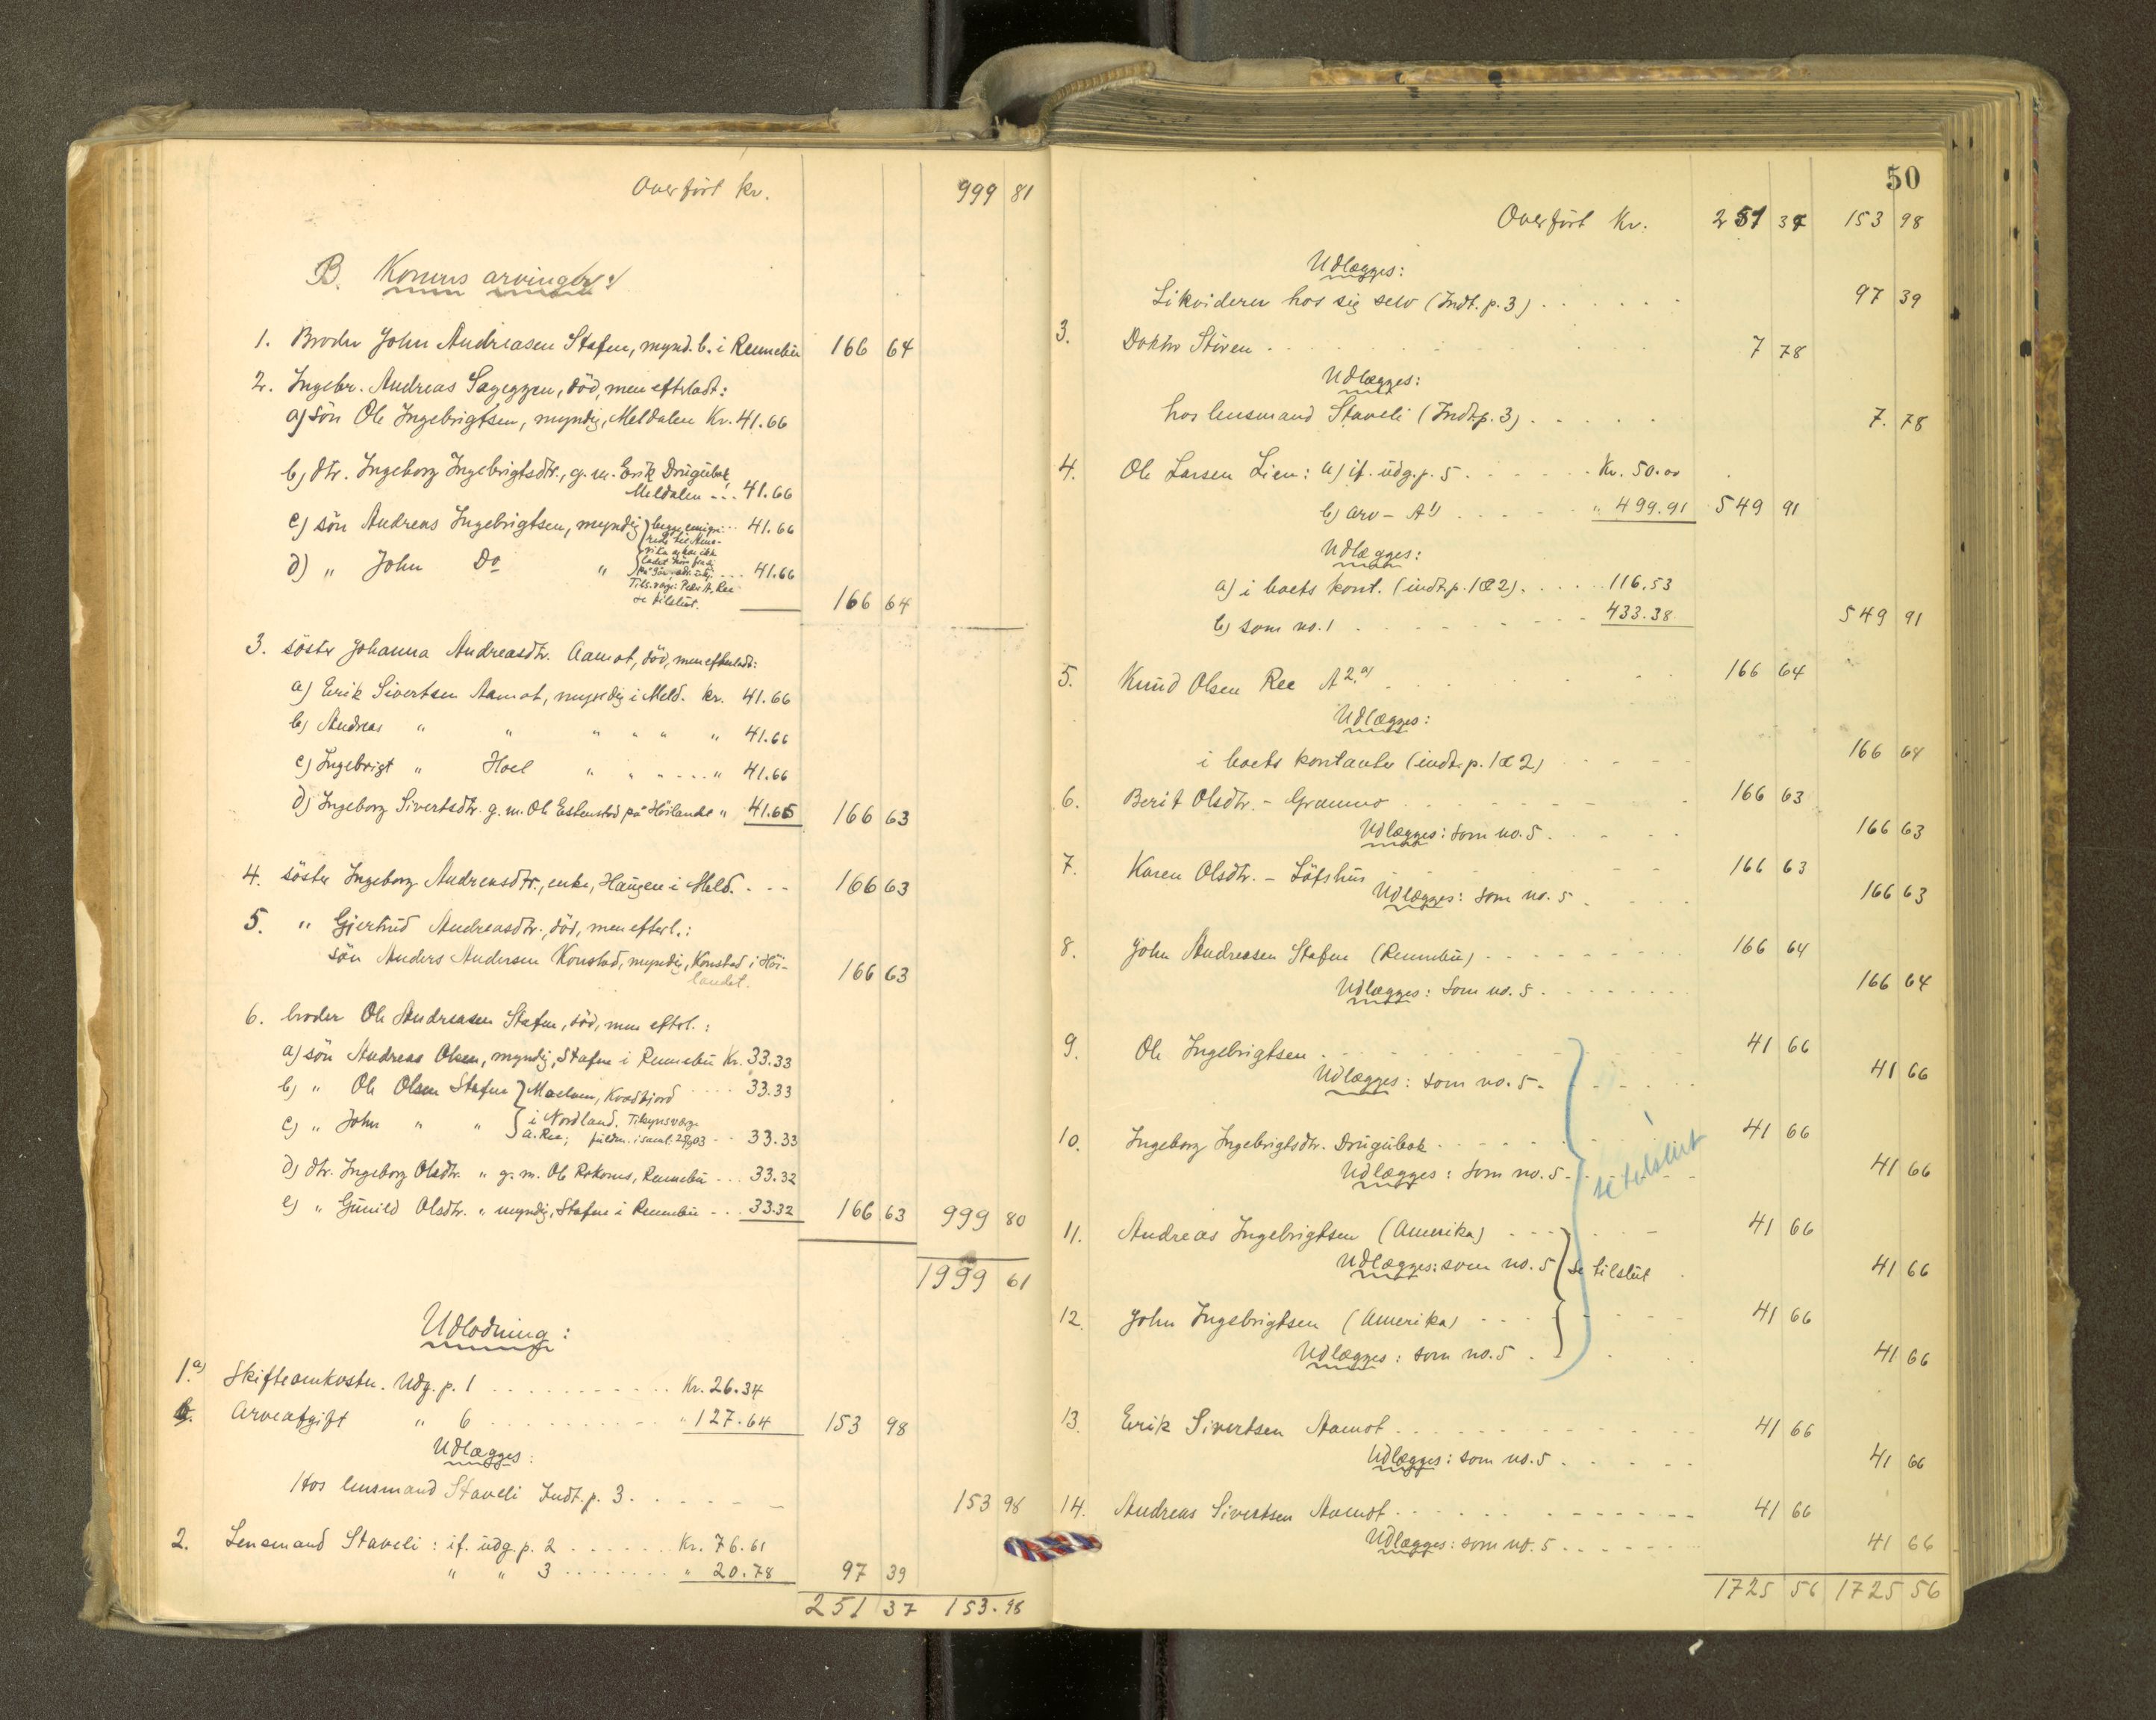 Overført kr. 999 81
B. Konens arvinger:
1. Broder John Andreasen Stafen, mynd. b. i Rennebu 166 64
2. Ingebr. Andreas Sageggen, död, men efterladt:
a) sön Ole Ingebrigtsen, myndig, Meldalen Kr. 41.66
b) dtr. Ingeborg Ingebrigtsdtr., g. m. Erik Drugubak
Meldalen ... 41.66
c) sön Andreas Ingebrigtsen, myndig } begge emigre- 41.66
rede til Ame-
rika og har ikke
d) " John Do " ... 41.66
Tils. verge: Peder A. Ree
se tilslut.
166 64
3. söster Johanna Andreasdtr. Aamot, död, men efterladt:
a) Erik Sivertsen Aamot, myndig i Meld. kr. 41.66
b) Andreas " " " " " " 41.66
c) Ingebrigt " Hoel " " " ... " 41.66
d) Ingeborg Sivertsdtr. g. m. Ole Estenstad på Höilandet " 41.65 166 63
4. söster Ingeborg Andreasdtr., enke, Haugen i Meld. - - - 166 63
5. " Gjertrud Andreasdtr., död, men efterl.:
sön Anders Andersen Konstad, myndig, Konstad i Höi-
landet. 166 63
6. broder Ole Andreasen Stafen, död, men efterl.:
a) sön Andreas Olsen, myndig, Stafen i Rennebu Kr. 33.33
b) " Ole Olsen Stafen } Moelven, Kvædfjord .... 33.33
i Nordland. Tilsynsverge
c) " John " " A. Ree; fuldm. i saml. - - 33.33
d) dtr. Ingeborg Olsdtr. " g. m. Ole Rokones, Rennebu ... 33.32
e) " Gunild Olsdtr. " myndig, Stafen i Rennebu - .. 33.32 166 63 999 80
1999 61
Udlodning:
1.a) Skifteomkostn. Udg. p. 1 .......... Kr. 26.34
b. Arveafgift " 6 .......... " 127.64 153 98
Udlægges:
Hos lensmand Staveli Indt. p. 3. . . . . 153 98
2. Lensmand Staveli: if. udg. p. 2 ...... Kr. 76.61
" " 3 ........ " 20.78 97 39
251 37 153.98
50
Overført Kr. 251 37 153 98
Udlægges:
Likviderer hos sig selv (Indt. p. 3) . . . . . 97 39
3. Doktor Stören . . . . 7 78
Udlægges:
hos lensmand Staveli (Indt. p. 3) . . . . . 7. 78
4. Ole Larsen Lien: a) if. udg. p. 5 . . . . . Kr. 50.00
b) arv - A1) . . . . . " 499.91 549 91
Udlægges:
a) i boets kont. (indt. p. 1 & 2) . . . . . 116.53
b) som no. 1 . . . . . 433.38 549 91
5. Knud Olsen Ree A 2.a) . . . . 166 64
Udlægges:
i boets kontanter (indt. p. 1 & 2) . . . . . 166 64
6. Berit Olsdtr. - Gramno . . . . . 166 63
Udlægges: som no. 5 . . . . 166 63
7. Karen Olsdtr. - Löfshus . . . . . 166 63
Udlægges: som no. 5 . . . . 166 63
8. John Andreasen Stafen (Rennebu) . . . . . 166 64
Udlægges: som no. 5 . . . . . 166 64
9. Ole Ingebrigtsen . . . . . 41 66
Udlægges: som no. 5 . . . . . 41 66
10. Ingeborg Ingebrigtsdtr. Drugubak . . . . . 41 66
Udlægges: som no. 5 . . . . . 41 66
se tilslut
11. Andreas Ingebrigtsen (Amerika) . . . . . 41 66
Udlægges: som no. 5 } se tilslut . 41 66
12. John Ingebrigtsen (Amerika) . . . . . 41 66
Udlægges: som no. 5 . . . . 41 66
13. Erik Sivertsen Aamot . . . . . 41 66
Udlægges: som no. 5 . . . . . 41 66
14. Andreas Sivertsen Aamot . . . . . 41 66
Udlægges: som no. 5 . . . . . 41 66
1725 56 1725 56